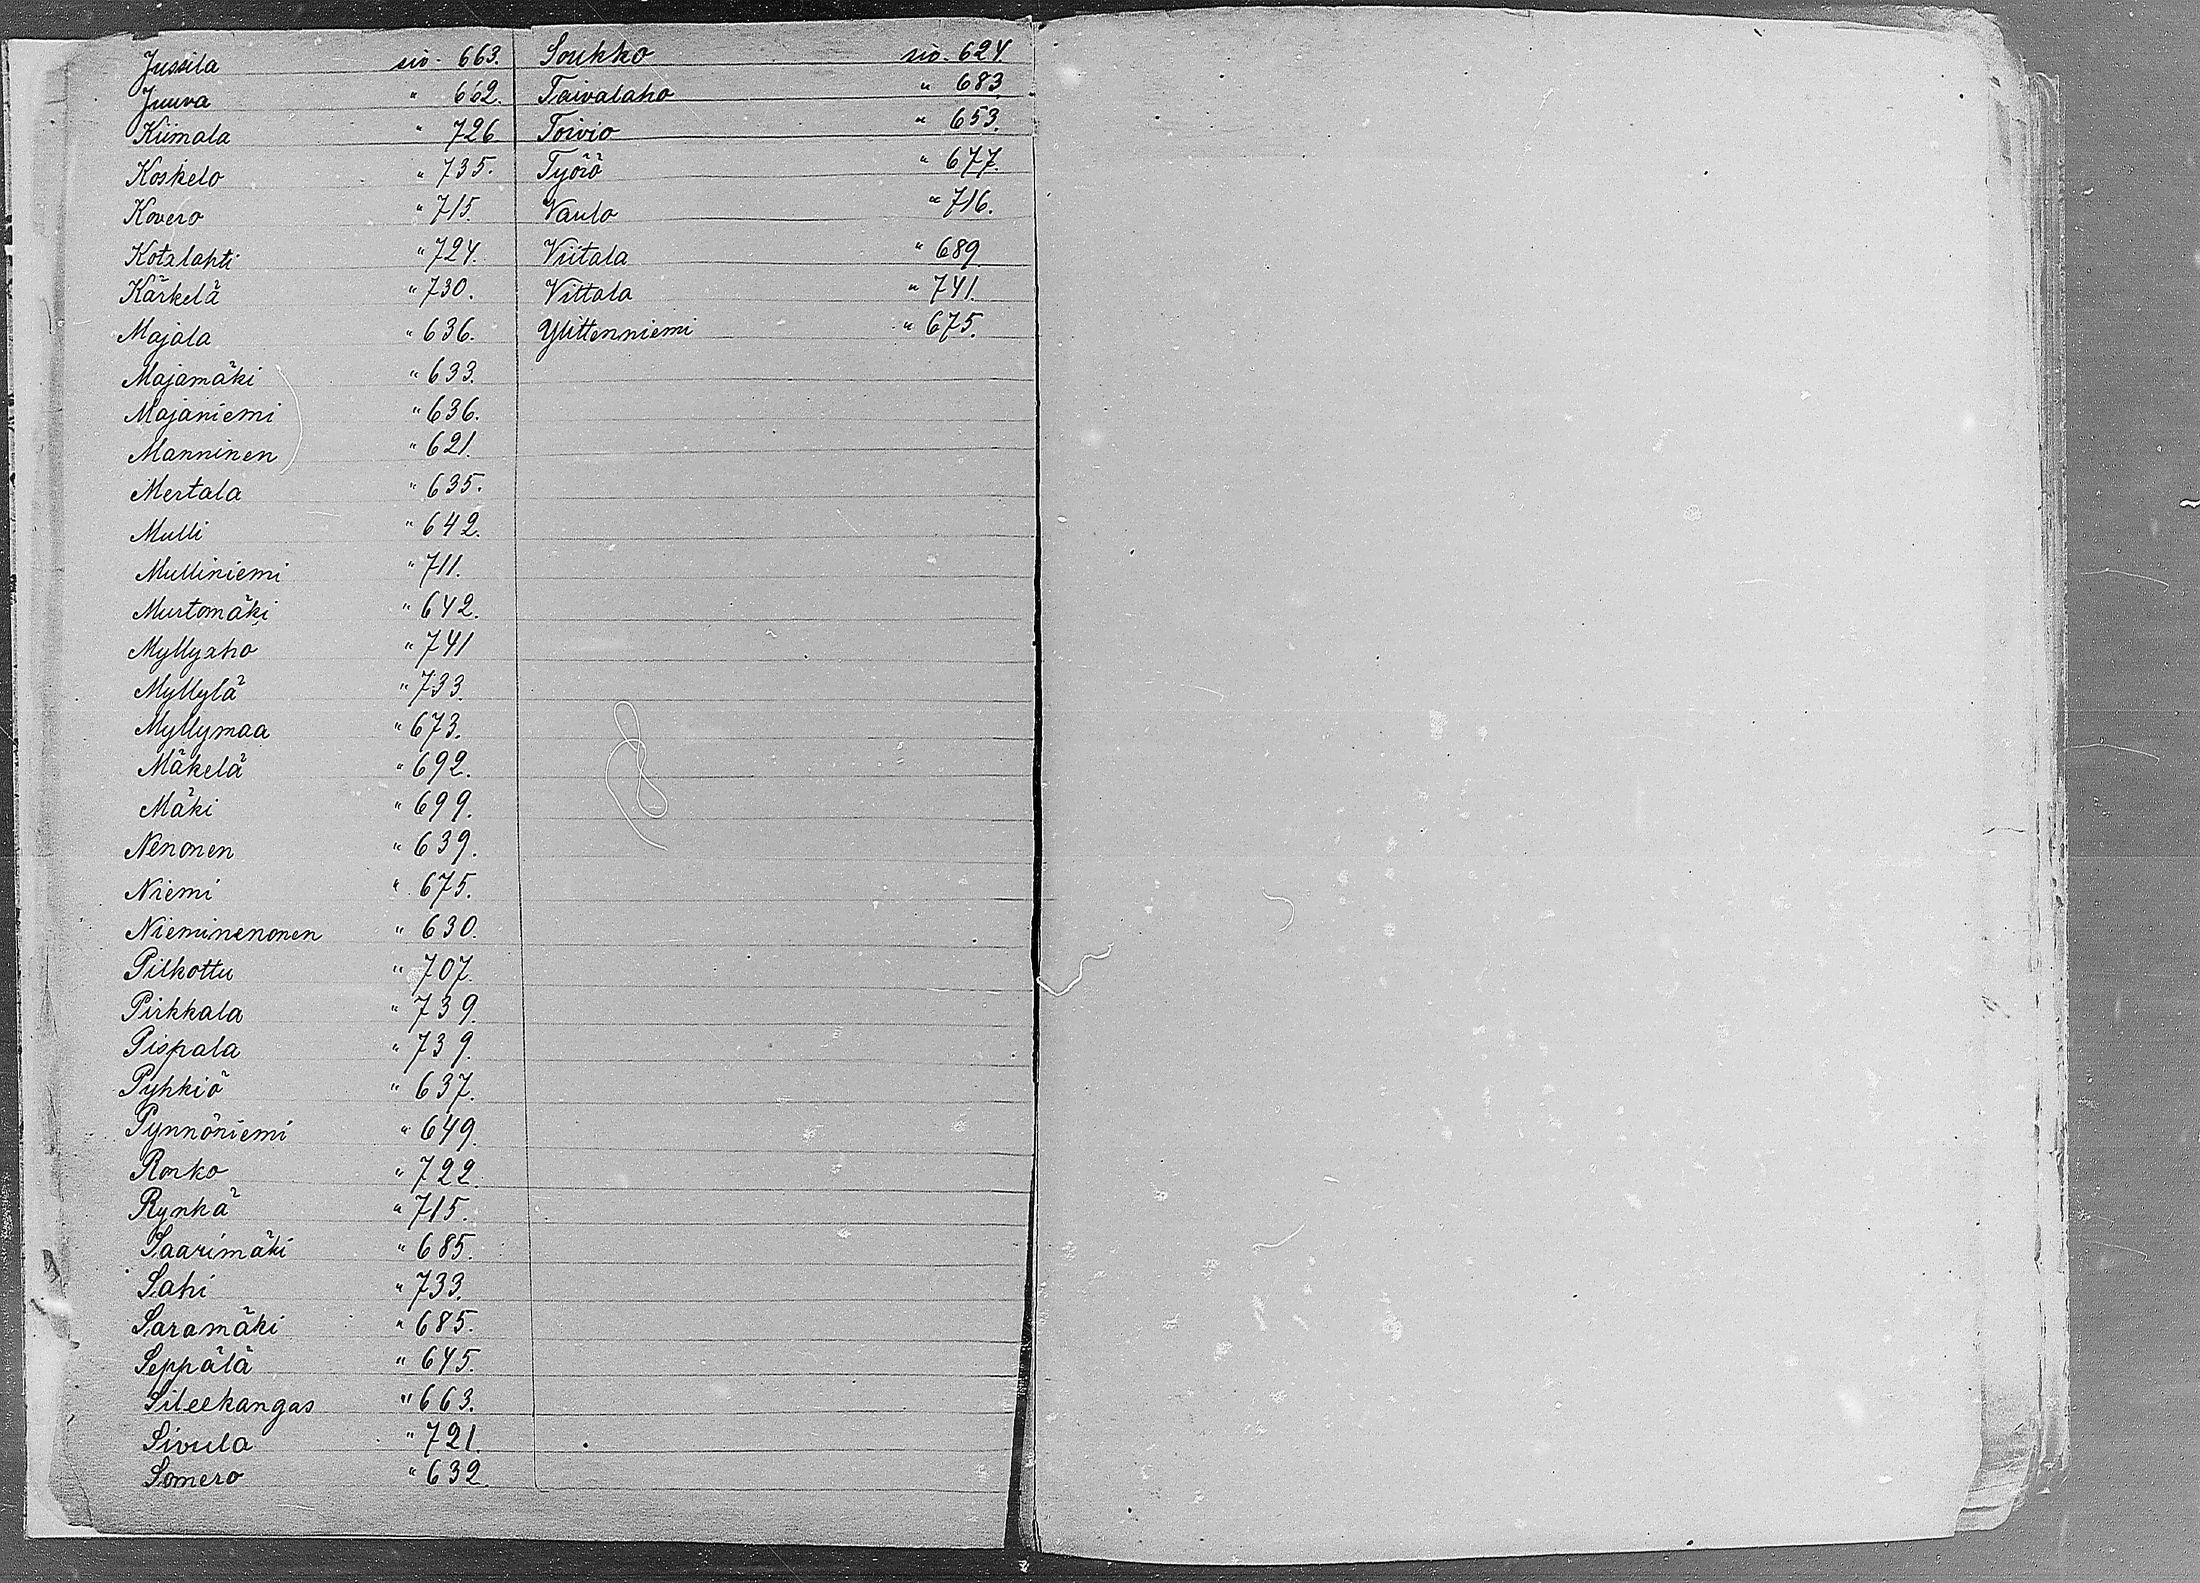 Jussila siv. 663.
Juuva " 662.
Kiimala " 726.
Koskelo " 735.
Kovero " 715.
Kotalahti " 724.
Kärkelä " 730.
Majala " 636.
Majamäki " 633.
Majaniemi " 636.
Manninen " 621.
Mertala " 635.
Mulli " 642.
Mulliniemi " 711.
Murtomäki " 642.
Myllyaho " 741
Myllylä " 733.
Myllymaa " 673.
Mäkelä " 692.
Mäki " 699.
Nenonen " 639.
Niemi " 675.
Nieminenonen " 630.
Pilkottu " 707.
Pirkkala " 739.
Pispala " 739.
Pyhkiö " 637.
Pynnöniemi " 649.
Ronko " 722.
Rynkä " 715.
Saarimäki " 685.
Sahi " 733.
Saramäki " 685.
Seppälä " 645.
Sileekangas " 663.
Sivula " 721.
Somero " 632.
Soukko siv. 624.
Taivalaho " 683.
Toivio " 653.
Työrö " 677.
Vaulo " 716.
Viitala " 689.
Vittala " 741.
Ylittenniemi " 675.